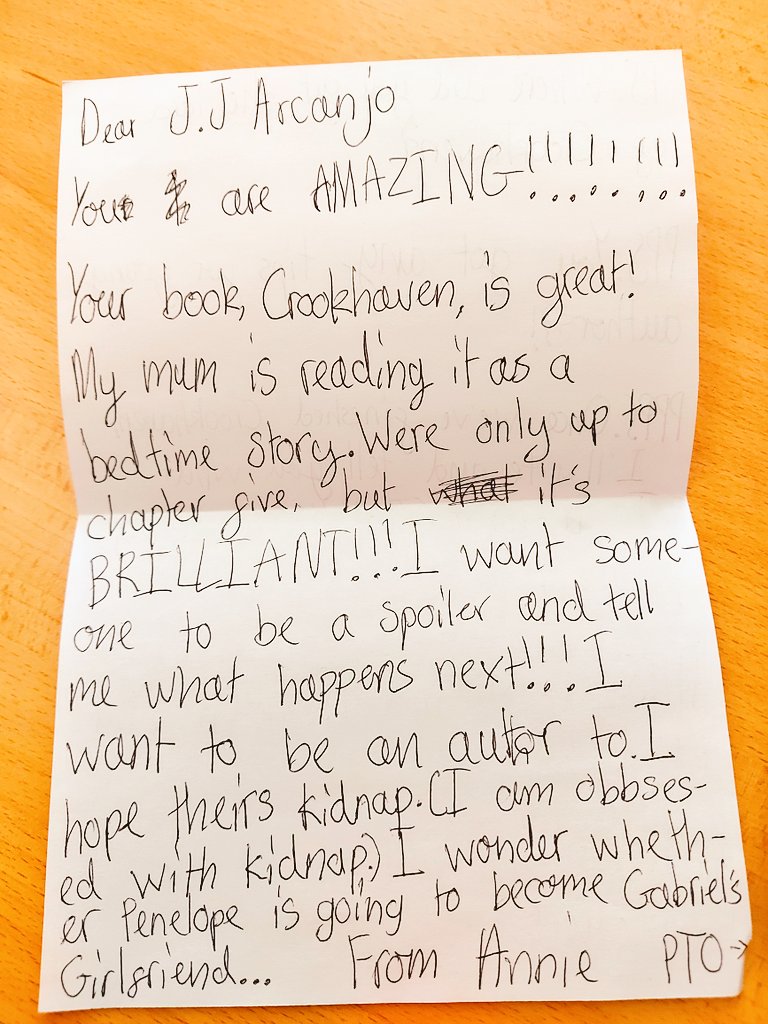 Dear J.J Arcanjo
You are AMAZING!!!!!!!!
Your book, Crookhaven, is great!
My mum is reading it as a
bedtime story. Were only up to
chapter five, but it's
BRILLIANT!!! I want some-
one to be a spoiler and tell
me what happens next!!! I
want to be an autor to. I
hope their's kidnap. (I am obbses-
ed with kidnap.) I wonder wheth-
er Penelope is going to become Gabriel's
Girlfriend... From Annie PTO→